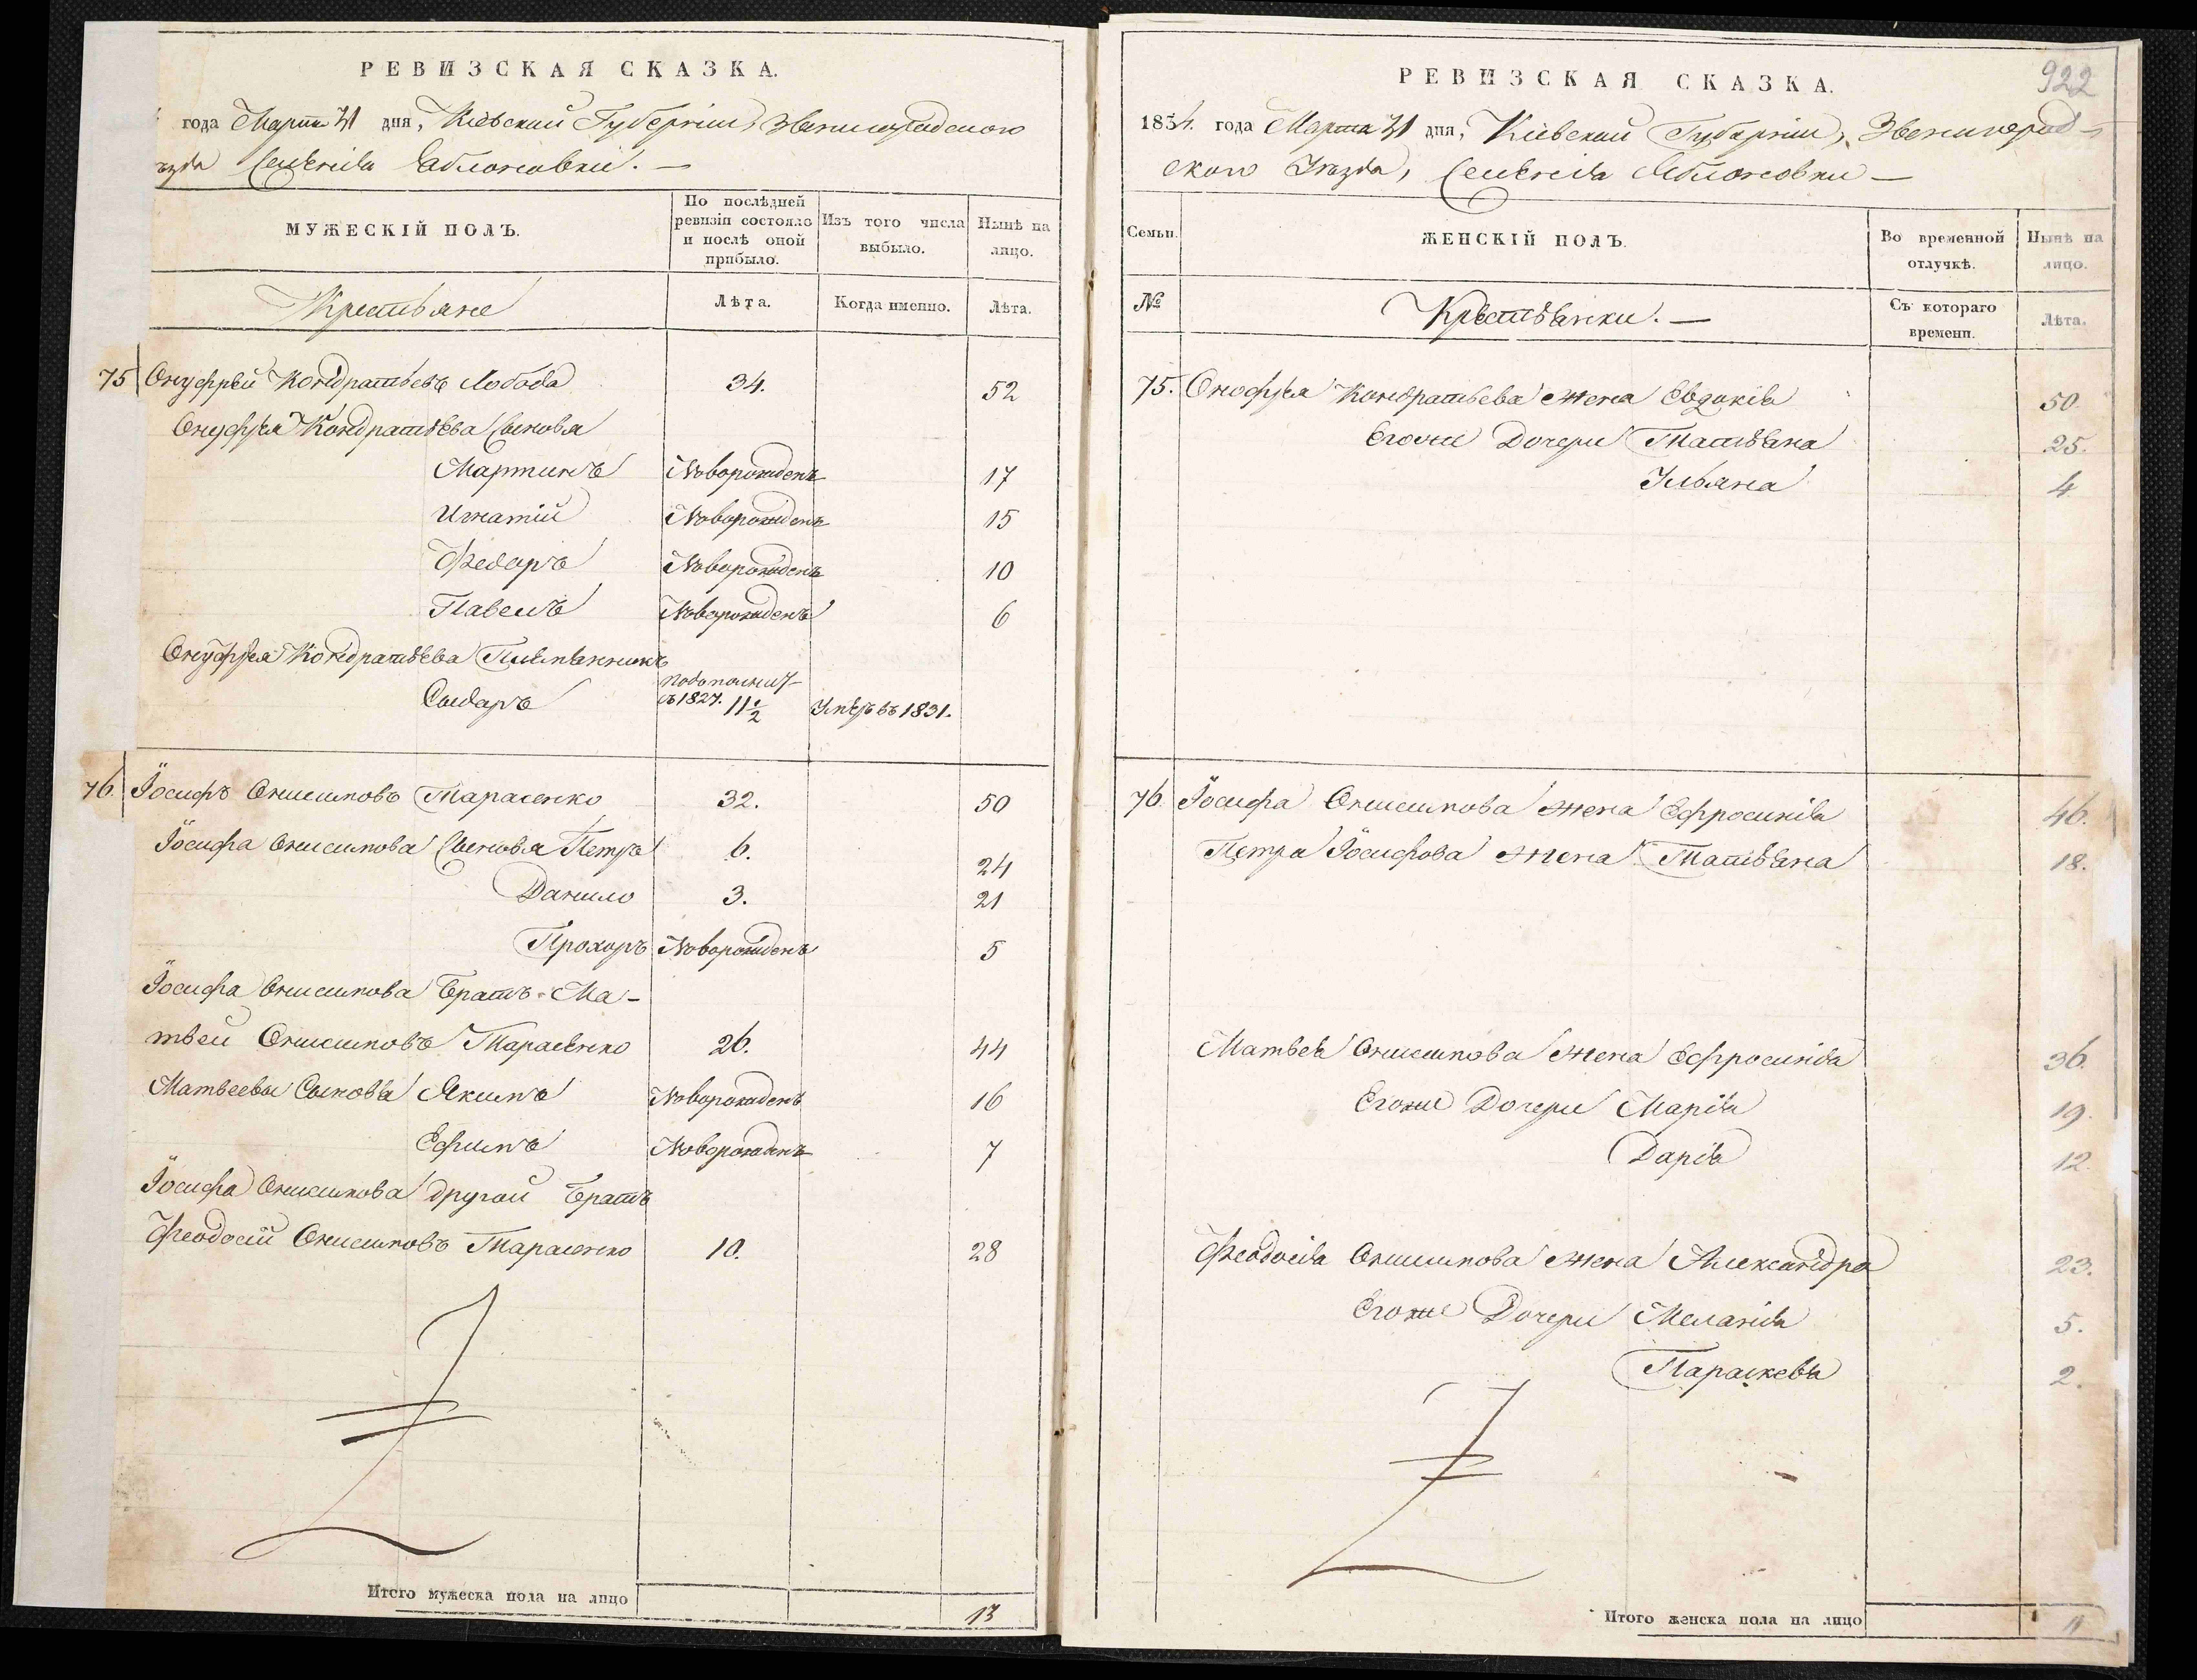 РЕВИЗСКАЯ СКАЗКА.
года Марта 31 дня, Кіевской Губерніи, Звенигородского
ѣзда Селенія Яблоновки. —
МУЖЕСКІЙ ПОЛЪ.
По послѣдней ревизіи состояло и послѣ оной прибыло.
Изъ того числа выбыло.
Нынѣ на лицо.
Крестьяне
Лѣта.
Когда именно.
Лѣта.
75 Онуфрѣй Кондратьевъ Лобода 34. 52
Онуфрѣя Кондратьева Сыновья
Мартинъ Новорожденъ 17
Игнатій Новорожденъ 15
Федоръ Новорожденъ 10
Павелъ Новорожденъ 6
Онуфрѣя Кондратьева Племѣнникъ
Сыдоръ
съ 1827. 11½ Умеръ въ 1831.
76. Іосифъ Онисимовъ Тарасенко 32. 50
Іосифа Онисимова Сыновья Петръ 6. 24
Данило 3. 21
Прохоръ Новорожденъ 5
Іосифа Онисимова Братъ Ма-
твей Онисимовъ Тарасенко 26. 44
Матвеевы Сыновья Якимъ Новорожденъ 16
Ефимъ Новорожденъ 7
Іосифа Онисимова другой Братъ
Феодосій Онисимовъ Тарасенко 10. 28
Итого мужеска пола на лицо 13
922
РЕВИЗСКАЯ СКАЗКА.
1854. года Марта 31 дня, Кіевской Губерніи, Звенигород-
ского Уѣзда, Селенія Яблоновки —
Семьи.
ЖЕНСКІЙ ПОЛЪ.
Во временной отлучкѣ.
Нынѣ на лицо.
№
Крестьянки. —
Съ котораго времени.
Лѣта.
75. Онофрѣя Кондратьева жена Евдокія 50.
Егоже Дочери Татьяна 25.
Ульяна 4
76. Іосифа Онисимова жена Ефросинія 46.
Петра Іосифова жена Татьяна 18.
Матвея Онисимова жена Ефросинія 36.
Егоже Дочери Марія 19.
Дарія 12.
Феодосія Онисимова жена Александра 23.
Егоже Дочери Меланія 5.
Параскева 2.
Итого женска пола на лицо 11